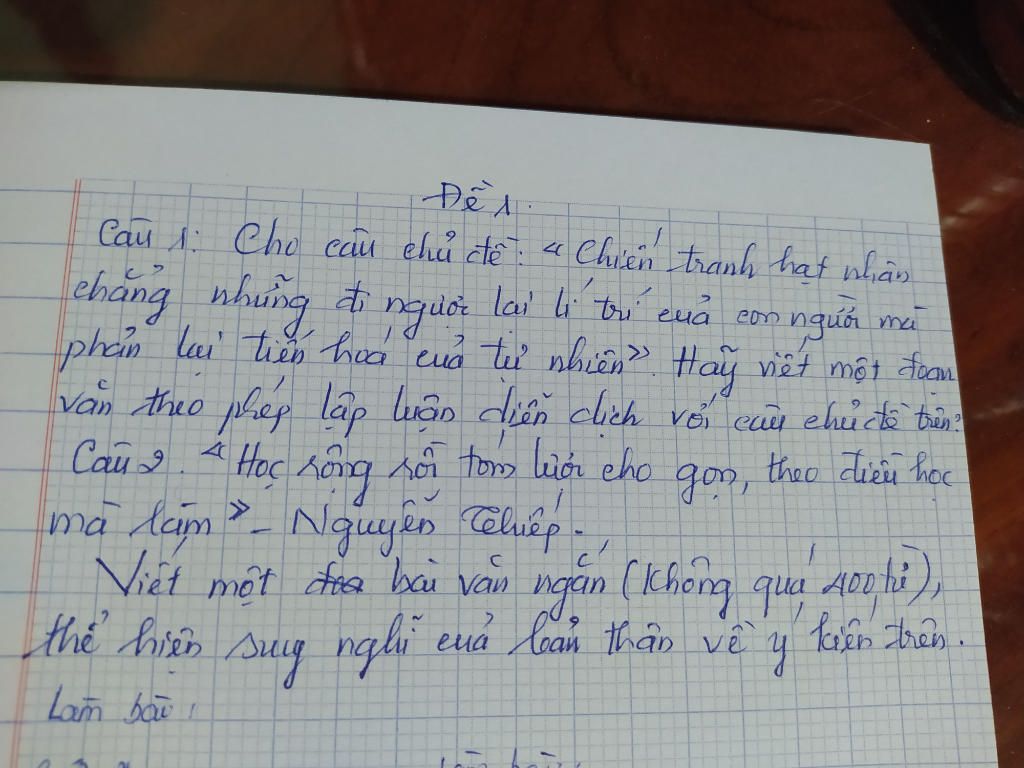 Đề 1.
Câu 1: Cho câu chủ đề: "Chiến tranh hạt nhân
chẳng những đi ngược lại lí trí của con người mà
phản lại tiến hoá của tự nhiên". Hãy viết một đoạn
văn theo phép lập luận diễn dịch với câu chủ đề trên?
Câu 2. "Học rộng rồi tóm lược cho gọn, theo điều học
mà làm" - Nguyễn Thiếp.
Viết một bài văn ngắn (không quá 400 từ),
thể hiện suy nghĩ của bản thân về ý kiến trên.
Làm bài: